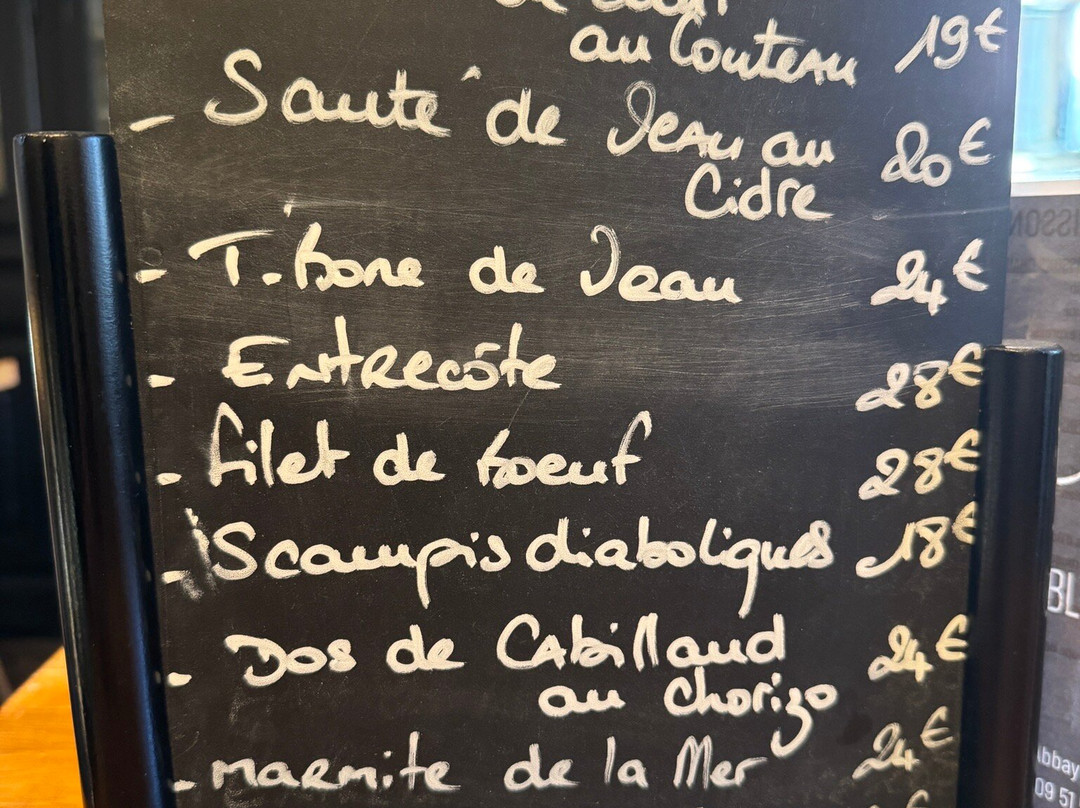 au Couteau 19€
- Sauté de Veau au 20€
Cidre
- T.bone de Veau 24€
- Entrecôte 28€
- filet de boeuf 28€
- Scampis diaboliques 18€
- Dos de Cabillaud 24€
au chorizo
- marmite de la Mer 24€
BL
bbay
09 51